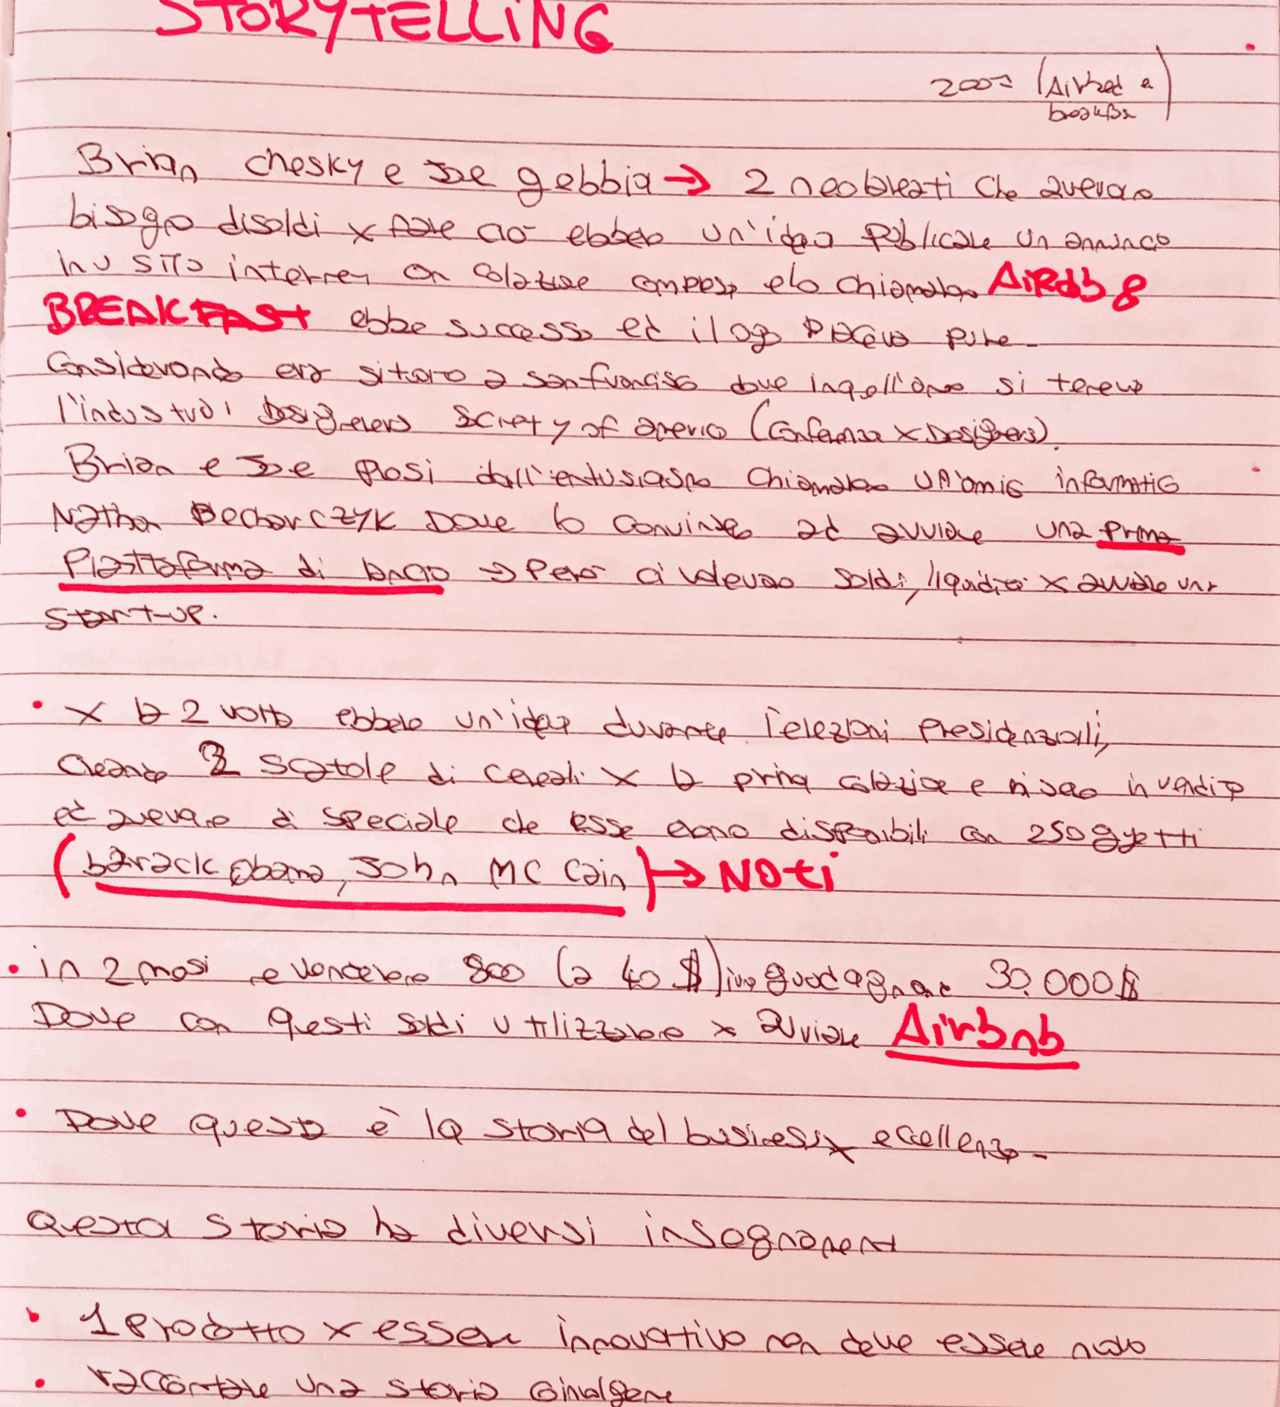 STORYTELLING
2007 (Airbed e
Brian chesky e Joe gebbia → 2 neolaureati che avevano
bisogno di soldi x fare ciò ebbero un'idea pubblicare un annuncio
in su sito internet con colazione compresa e lo chiamarono AiRdb &
BREAKFAST ebbe successo ed il piaceva pure.
Considerando era sito a san francisco dove in quell'anno si teneva
l'industrial Designers Society of america (Conferenza x Designers).
Brian e Joe presi dall'entusiasmo chiamarono un'amico informatico
Nathan Blecharczyk Dove lo convinsero ad avviare una prima
Piattaforma di lancio → Però ci volevano soldi, liquidità x avviare una
start-up.
• x la 2 volta ebbero un'idea durante l'elezioni presidenziali,
Creando 2 scatole di cereali x la prima colazione e misero in vendita
ed avevano di speciale che esse erano disponibili con 2 soggetti
(barack obama, John MC Cain) → NOti
• in 2 mesi e venderono 800 (a 40 $) guadagnare 30.000$
Dove con questi soldi utilizzarono x avviare Airbnb
• Dove questa è la storia del business x eccellenza.
Questa storia ha diversi insegnamenti
• 1 Prodotto x essere innovativo non deve essere nuovo
• raccontare una storia coinvolgente